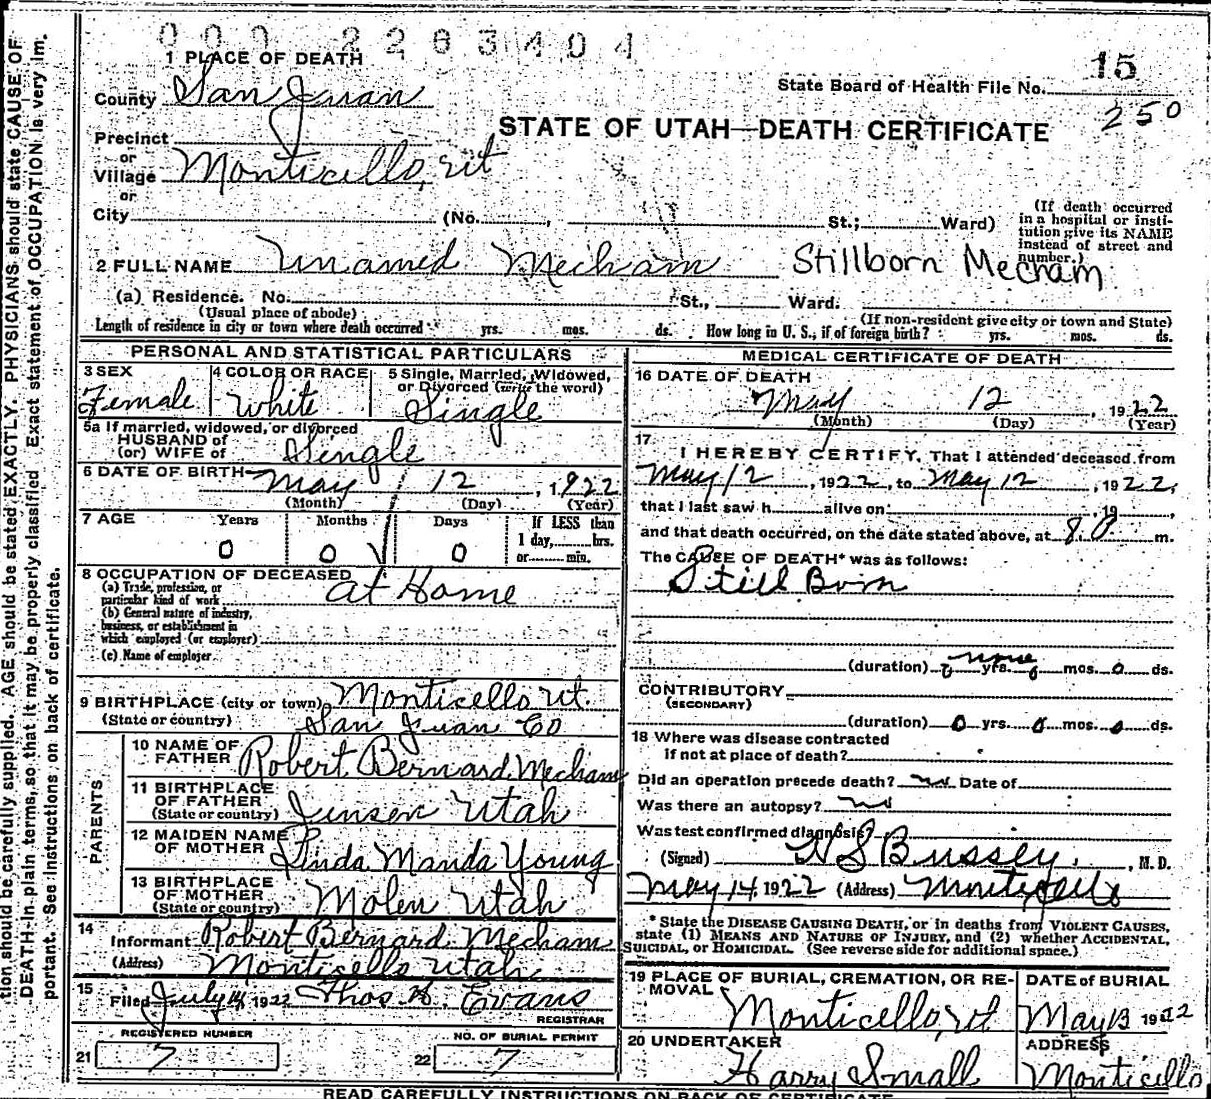 000 2263404
1 PLACE OF DEATH
15
State Board of Health File No.
250
County San Juan
STATE OF UTAH—DEATH CERTIFICATE
Precinct
or
Village Monticello, Ut
or
City (No. , St.; Ward)
(If death occurred in a hospital or institution give its NAME instead of street and number.)
2 FULL NAME Unamed Mecham Stillborn Mecham
(a) Residence. No. St., Ward.
(Usual place of abode) (If non-resident give city or town and State)
Length of residence in city or town where death occurred yrs. mos. ds. How long in U. S., if of foreign birth? yrs. mos. ds.
PERSONAL AND STATISTICAL PARTICULARS
3 SEX 4 COLOR OR RACE 5 Single, Married, Widowed,
or Divorced (write the word)
Female White Single
5a If married, widowed, or divorced
HUSBAND of
(or) WIFE of Single
6 DATE OF BIRTH May 12, 1922
(Month) (Day) (Year)
7 AGE Years Months Days If LESS than
1 day, hrs.
or min.
0 0 0
8 OCCUPATION OF DECEASED at Home
(a) Trade, profession, or
particular kind of work
(b) General nature of industry,
business, or establishment in
which employed (or employer)
(c) Name of employer
9 BIRTHPLACE (city or town) Monticello Ut.
(State or country) San Juan Co
PARENTS
10 NAME OF
FATHER Robert Bernard Mecham
11 BIRTHPLACE
OF FATHER
(State or country) Jensen Utah
12 MAIDEN NAME
OF MOTHER Linda Manda Young
13 BIRTHPLACE
OF MOTHER
(State or country) Molen Utah
14
Informant Robert Bernard Mecham
(Address) Monticello Utah
15
Filed July 14, 1922 Thos. H. Evans
REGISTRAR
REGISTERED NUMBER NO. OF BURIAL PERMIT
21 7 22 7
MEDICAL CERTIFICATE OF DEATH
16 DATE OF DEATH
May 12, 1922
(Month) (Day) (Year)
17
I HEREBY CERTIFY, That I attended deceased from
May 12, 1922, to May 12, 1922,
that I last saw h alive on , 19 ,
and that death occurred, on the date stated above, at 8.0 m.
The CAUSE OF DEATH* was as follows:
Still Born
none
(duration) 0 yrs. 0 mos. 0 ds.
CONTRIBUTORY
(SECONDARY)
(duration) 0 yrs. 0 mos. 0 ds.
18 Where was disease contracted
if not at place of death?
Did an operation precede death? no Date of
Was there an autopsy? no
Was test confirmed diagnosis?
(Signed) W S Bussey, M. D.
May 14, 1922 (Address) Monticello
* State the DISEASE CAUSING DEATH, or in deaths from VIOLENT CAUSES,
state (1) MEANS AND NATURE OF INJURY, and (2) whether ACCIDENTAL,
SUICIDAL, or HOMICIDAL. (See reverse side for additional space.)
19 PLACE OF BURIAL, CREMATION, OR RE-
MOVAL
Monticello, Ut
DATE of BURIAL
May 13 1922
20 UNDERTAKER
Harry Small
ADDRESS
Monticello
READ CAREFULLY INSTRUCTIONS ON BACK OF CERTIFICATE
tion should be carefully supplied. AGE should be stated EXACTLY. PHYSICIANS should state CAUSE OF
DEATH in plain terms, so that it may be properly classified. Exact statement of OCCUPATION is very im-
portant. See instructions on back of certificate.